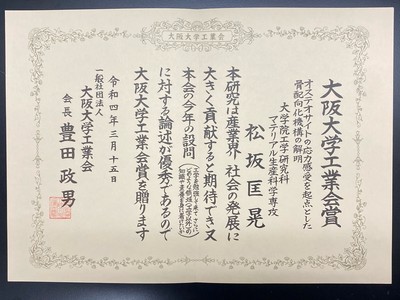 大阪大学工業会
大阪大学工業会賞
オステオサイトの応力感受を起点とした
骨配向化機構の解明
大学院工学研究科
マテリアル生産科学専攻
松坂匡晃
本研究は産業界、社会の発展に
大きく貢献すると期待でき又
本会の今年の設問
に対する論述が優秀であるので
大阪大学工業会賞を贈ります
令和四年三月十五日
一般社団法人
大阪大学工業会
会長 豊田政男